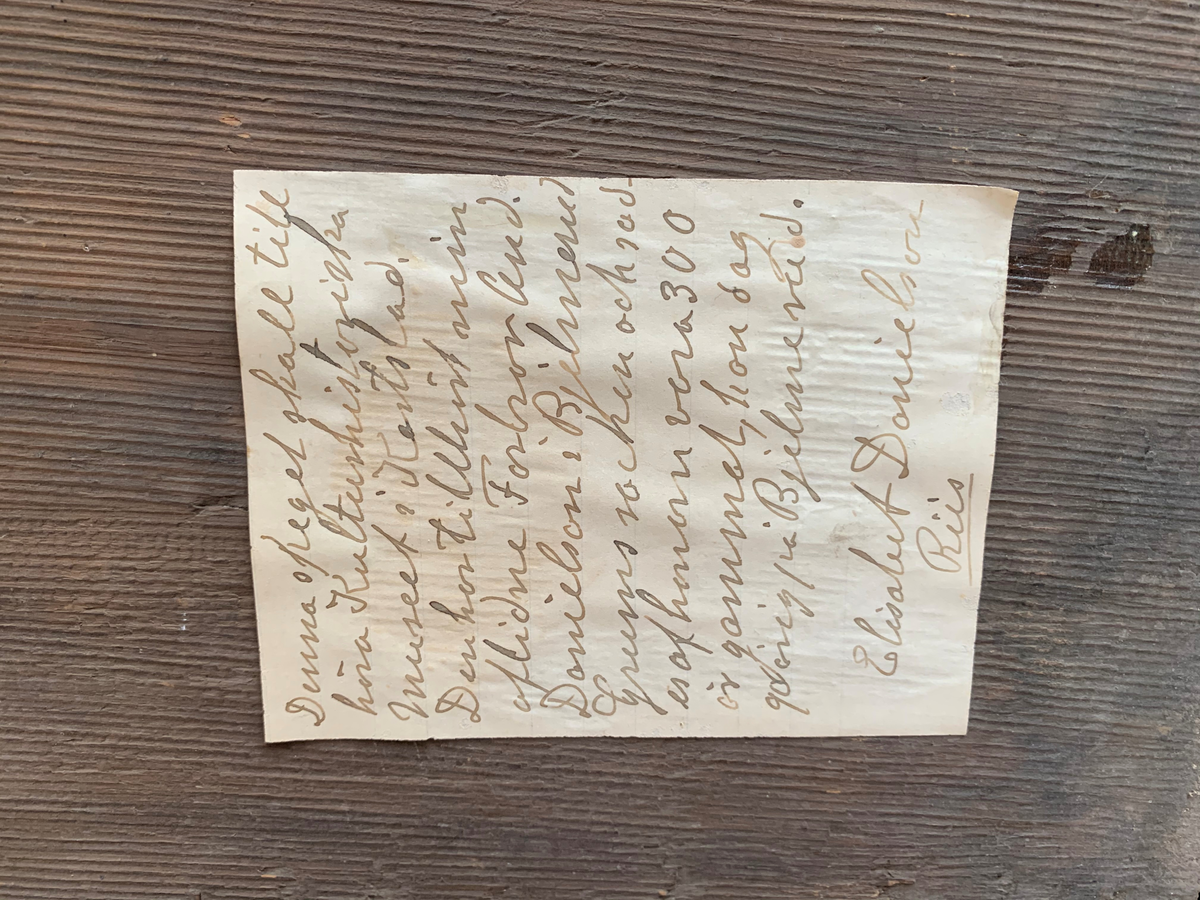 Denna spegel skall till
höra Kulturhistoriska
Museet i Karlstad.
Den har tillhört min
aflidne Farbror And.
Danielson i Bjelmerud
Grums socken och sad-
es af honom vara 300
år gammal, han såg
sig på Bjelmerud.
Elisabet Danielson
Riis